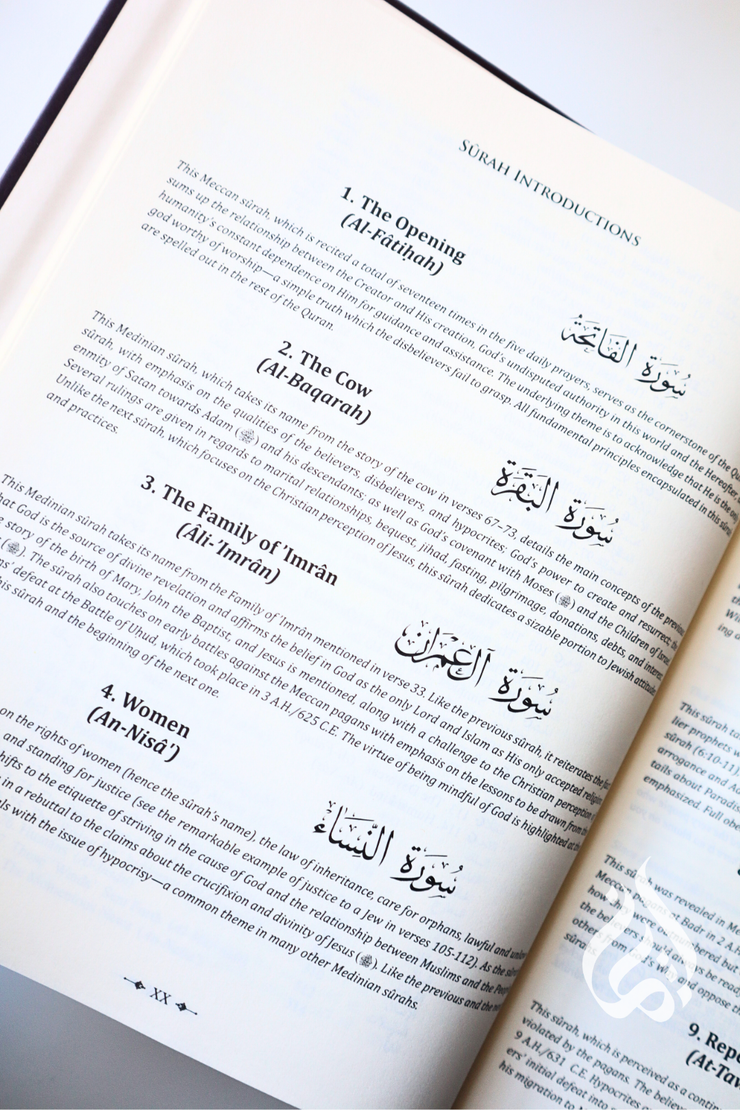 SÛRAH INTRODUCTIONS
1. The Opening
(Al-Fâtiḥah)
سُورَةُ الفَاتِحَةُ
This Meccan sûrah, which is recited a total of seventeen times in the five daily prayers, serves as the cornerstone of the
sums up the relationship between the Creator and His creation, God's undisputed authority in this world and the Hereafter,
humanity's constant dependence on Him for guidance and assistance. The underlying theme is to acknowledge that He is the only
god worthy of worship—a simple truth which the disbelievers fail to grasp. All fundamental principles encapsulated in this sûrah
are spelled out in the rest of the Quran.
2. The Cow
(Al-Baqarah)
سُورَةُ البَقَرَة
This Medinian sûrah, which takes its name from the story of the cow in verses 67–73, details the main concepts of the previous
sûrah, with emphasis on the qualities of the believers, disbelievers, and hypocrites; God's power to create and resurrect; the
enmity of Satan towards Adam (ﷺ) and his descendants; as well as God's covenant with Moses (ﷺ) and the Children of Israel.
Several rulings are given in regards to marital relationships, bequest, jihad, fasting, pilgrimage, donations, debts, and interest.
Unlike the next sûrah, which focuses on the Christian perception of Jesus, this sûrah dedicates a sizable portion to Jewish attitudes
and practices.
3. The Family of 'Imrân
(Âli-'Imrân)
سُورَةُ آل عِمْرَان
This Medinian sûrah takes its name from the Family of 'Imrân mentioned in verse 33. Like the previous sûrah, it reiterates the
that God is the source of divine revelation and affirms the belief in God as the only Lord and Islam as His only accepted religion.
story of the birth of Mary, John the Baptist, and Jesus is mentioned, along with a challenge to the Christian perception
(ﷺ). The sûrah also touches on early battles against the Meccan pagans with emphasis on the lessons to be drawn from the
defeat at the Battle of Uhud, which took place in 3 A.H./625 C.E. The virtue of being mindful of God is highlighted at the
this sûrah and the beginning of the next one.
4. Women
(An-Nisâ')
سُورَةُ النِّسَاء
on the rights of women (hence the sûrah's name), the law of inheritance, care for orphans, lawful and
and standing for justice (see the remarkable example of justice to a Jew in verses 105-112). As the sûrah
shifts to the etiquette of striving in the cause of God and the relationship between Muslims and the
in a rebuttal to the claims about the crucifixion and divinity of Jesus (ﷺ). Like the previous and the next
with the issue of hypocrisy—a common theme in many other Medinian sûrahs.
XX
This sûrah
lier prophets
sûrah (6:10-11)
arrogance and
tails about
emphasized. Full
This sûrah was revealed in
Meccan pagans at Badr in 2
how
the believers should always be
other
sûrah
9.
This sûrah, which is perceived as a
violated by the pagans. The
9 A.H./631 C.E. Hypocrites
ers' initial defeat into
his migration to